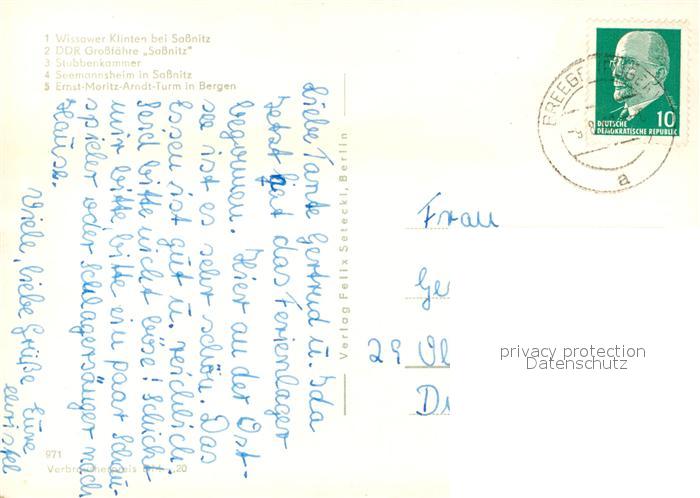 1 Wissower Klinten bei Saßnitz
2 DDR Großfähre „Saßnitz"
3 Stubbenkammer
4 Seemannsheim in Saßnitz
5 Ernst-Moritz-Arndt-Turm in Bergen
Liebe Tante Gertrud u. Ida
Jetzt hat das Ferienlager
begonnen. Hier an der Ost-
see ist es sehr schön. Das
Essen ist gut u. reichlich.
Seid bitte nicht böse! Schickt
mir bitte bitte ein paar Schau-
spieler oder Schlagersänger nach
Hause.
Viele, liebe Grüße Eure
Christel
971
Verbraucherpreis
20
Verlag Felix Setecki, Berlin
BREEGE
a
10
DEUTSCHE
DEMOKRATISCHE REPUBLIK
Frau
Ge
29
D
privacy protection
Datenschutz